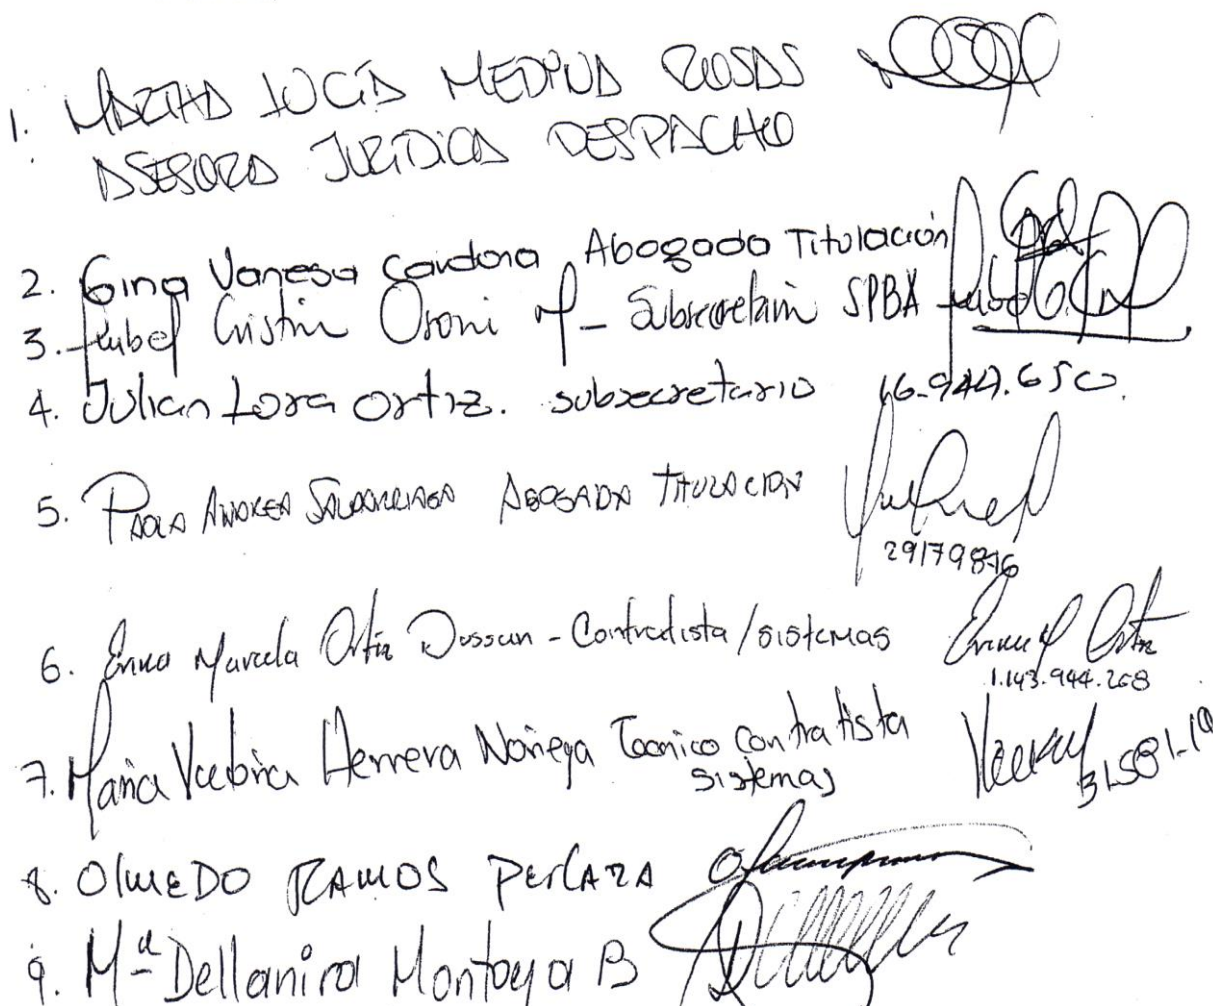 1. MARTHA LUCÍA MEDINA ROSAS
ASESORA JURÍDICA DESPACHO
2. Gina Vanesa Cardona Abogada Titulación
3. Cristina Osorio M - Subsecretaria SPBX
4. Julian Lora Ortiz. subsecretario 16.944.650.
5. PAOLA ANDREA SALDARRIAGA ABOGADA TITULACION
29179876
6. Marcela Ortiz - Contratista/sistemas
1.143.944.268
7. Maria Herrera Noriega Tecnico Contratista
sistemas
8. OlmEDO RAMOS PERLAZA
9. Mª Dellanira Montoya B